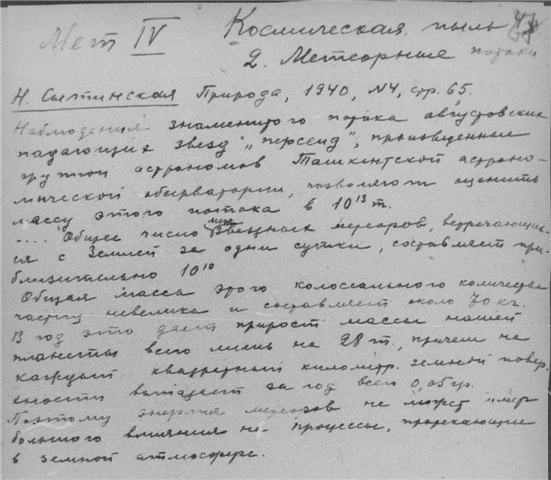 Мет IV Космическая пыль
2. Метеорные потоки
Н. Сытинская Природа, 1940, N4, стр. 65.
Наблюдения знаменитого потока августовских
падающих звезд "персеид", произведенные
группой астрономов Ташкентской астроно-
мической обсерватории, позволяют оценить
массу этого потока в 10¹³ т.
.... Общее число метеоров, встречающих-
ся с Землей за одни сутки, составляет при-
близительно 10¹⁰
Общая масса этого колоссального количества
частиц невелика и составляет около 70 кг.
В год это дает прирост массы нашей
планеты всего лишь на 28 т., причем на
каждый квадратный километр. земной повер
хности выпадает за год всего 0,06 гр.
Поэтому энергия метеоров не может иметь
большого влияния на процессы, протекающие
в земной атмосфере.